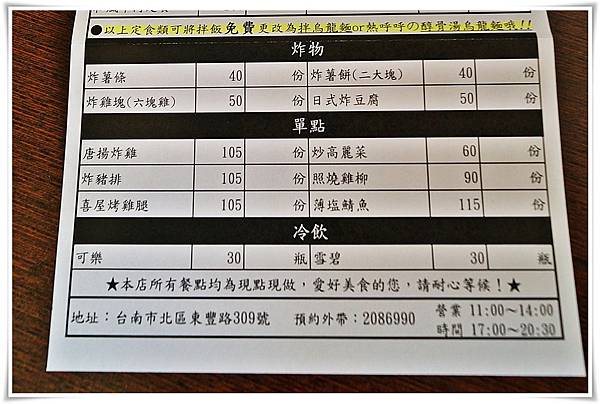 ●以上定食類可將拌飯免費更改為拌烏龍麵or熱呼呼的醇骨湯烏龍麵哦!!
炸物
炸薯條 40 份 炸薯餅(二大塊) 40 份
炸雞塊(六塊雞) 50 份 日式炸豆腐 50 份
單點
唐揚炸雞 105 份 炒高麗菜 60 份
炸豬排 105 份 照燒雞柳 90 份
喜屋烤雞腿 105 份 薄塩鯖魚 115 份
冷飲
可樂 30 瓶 雪碧 30 瓶
★本店所有餐點均為現點現做，愛好美食的您，請耐心等候！★
地址：台南市北區東豐路309號 預約外帶：2086990 營業 11:00～14:00
時間 17:00～20:30